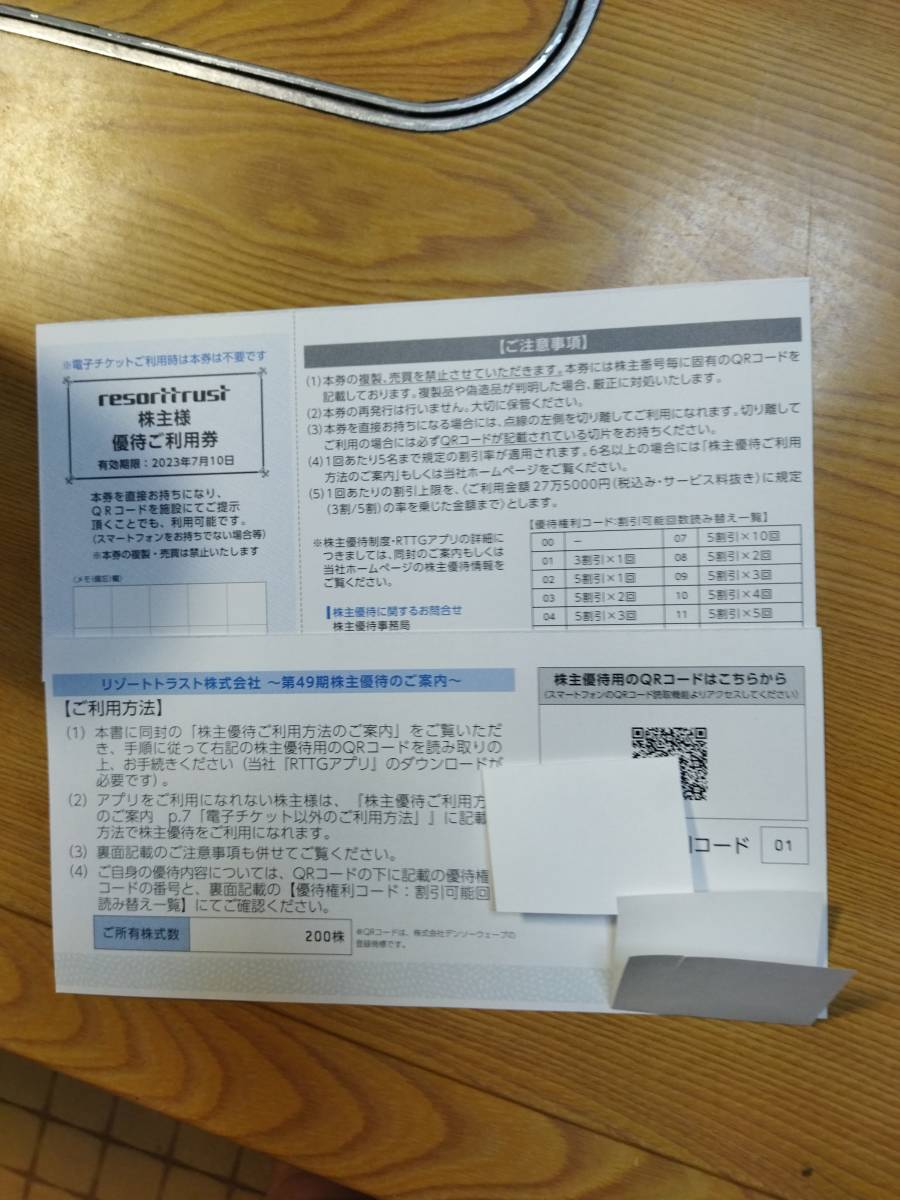 ※電子チケットご利用時は本券は不要です
resorttrust
株主様
優待ご利用券
有効期限：2023年7月10日
本券を直接お持ちになり、
QRコードを施設にてご提示
頂くことでも、利用可能です。
(スマートフォンをお持ちでない場合等)
※本券の複製・売買は禁止いたします
(メモ(備忘)欄)
【ご注意事項】
(1)本券の複製、売買を禁止させていただきます。本券には株主番号毎に固有のQRコードを
記載しております。複製品や偽造品が判明した場合、厳正に対処いたします。
(2)本券の再発行は行いません。大切に保管ください。
(3)本券を直接お持ちになる場合には、点線の左側を切り離してご利用になれます。切り離して
ご利用の場合には必ずQRコードが記載されている切片をお持ちください。
(4)1回あたり5名まで規定の割引率が適用されます。6名以上の場合には「株主優待ご利用
方法のご案内」もしくは当社ホームページをご覧ください。
(5)1回あたりの割引上限を、〈ご利用金額27万5000円(税込み・サービス料抜き)に規定
(3割/5割)の率を乗じた金額まで〉とします。
※株主優待制度・RTTGアプリの詳細に
つきましては、同封のご案内もしくは
当社ホームページの株主優待情報を
ご覧ください。
株主優待に関するお問合せ
株主優待事務局
【優待権利コード：割引可能回数読み替え一覧】
00 － 07 5割引×10回
01 3割引×1回 08 5割引×2回
02 5割引×1回 09 5割引×3回
03 5割引×2回 10 5割引×4回
04 5割引×3回 11 5割引×5回
リゾートトラスト株式会社 ～第49期株主優待のご案内～
【ご利用方法】
(1) 本書に同封の「株主優待ご利用方法のご案内」をご覧いただ
き、手順に従って右記の株主優待用のQRコードを読み取りの
上、お手続きください（当社『RTTGアプリ』のダウンロードが
必要です）。
(2) アプリをご利用になれない株主様は、『株主優待ご利用方
のご案内 p.7「電子チケット以外のご利用方法」』に記載
方法で株主優待をご利用になれます。
(3) 裏面記載のご注意事項も併せてご覧ください。
(4) ご自身の優待内容については、QRコードの下に記載の優待権
コードの番号と、裏面記載の【優待権利コード：割引可能回
読み替え一覧】にてご確認ください。
ご所有株式数 200株
※QRコードは、株式会社デンソーウェーブの
登録商標です。
株主優待用のQRコードはこちらから
(スマートフォンのQRコード読取機能よりアクセスしてください)
コード 01